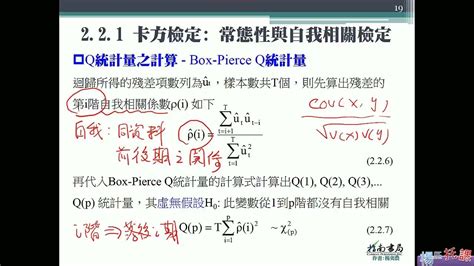 19
2.2.1 卡方檢定: 常態性與自我相關檢定
Q統計量之計算 - Box-Pierce Q統計量
迴歸所得的殘差項數列為û_t，樣本數共T個，則先算出殘差的
第i階自我相關係數ρ(i) 如下
cov(x, y)
√V(x)V(y)
自我：同資料
前後期之關係
ρ̂(i) = Σ_{t=i+1}^{T} û_t û_{t-i} / Σ_{t=1}^{T} û_t^2
(2.2.6)
再代入Box-Pierce Q統計量的計算式計算出Q(1), Q(2), Q(3),...
Q(p) 統計量，其虛無假設H₀: 此變數從1到p階都沒有自我相關
i階 ⇒ 落後i期
Q(p) = T Σ_{i=1}^{p} ρ̂(i)² ~ χ²_(p)
(2.2.7)
指南書局
作者:楊奕農